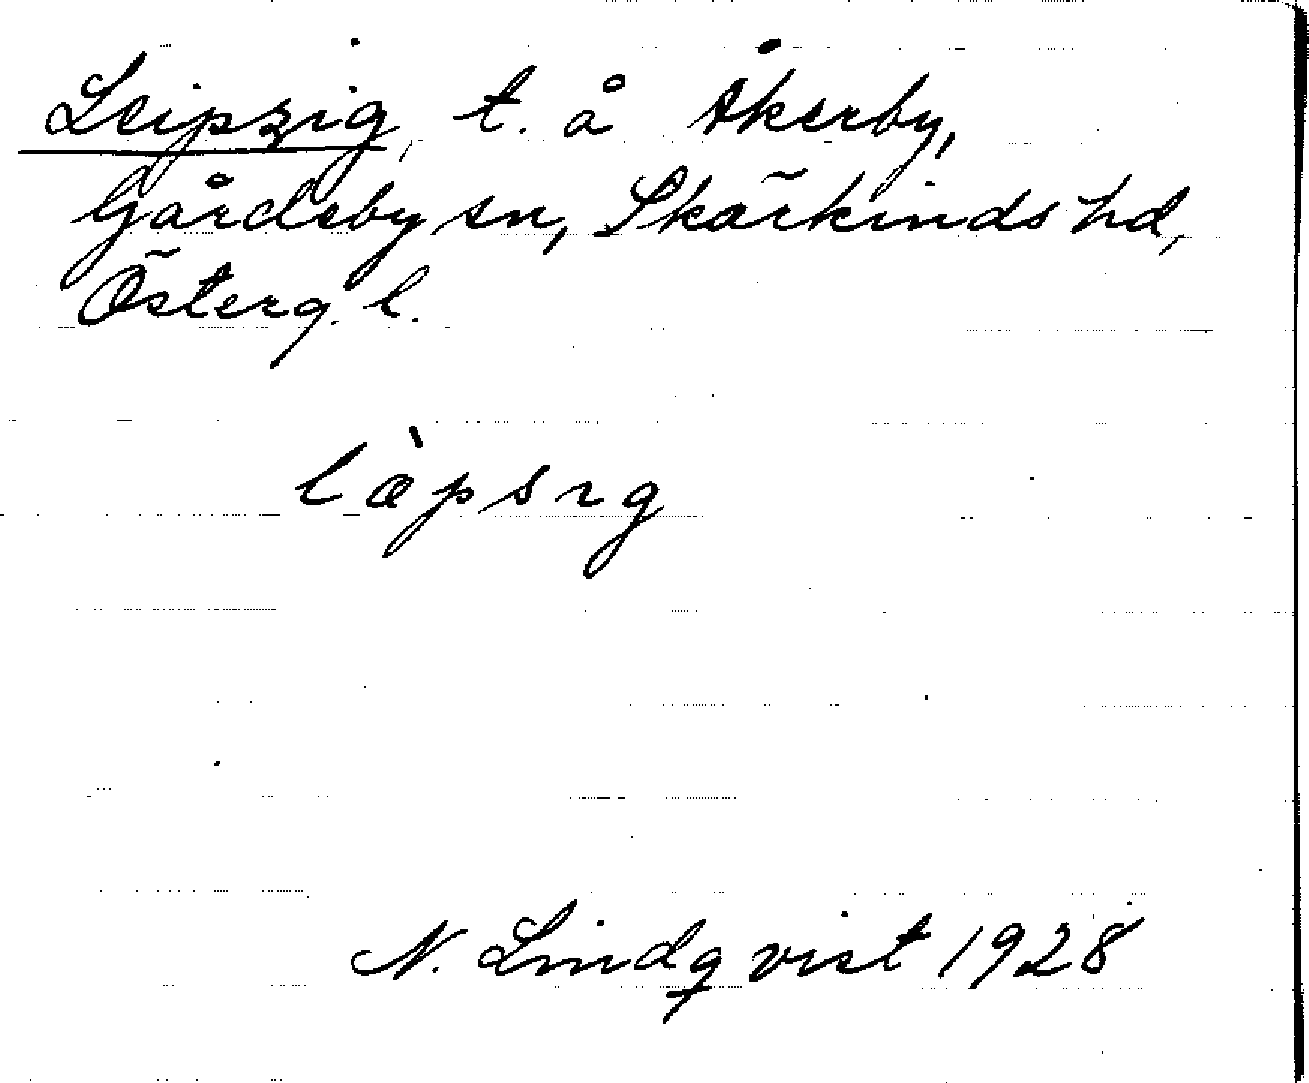 Leipzig, t. å Åkerby,
Gårdeby sn, Skärkinds hd,
Österg. l.
læ̀psıg
N. Lindqvist 1928